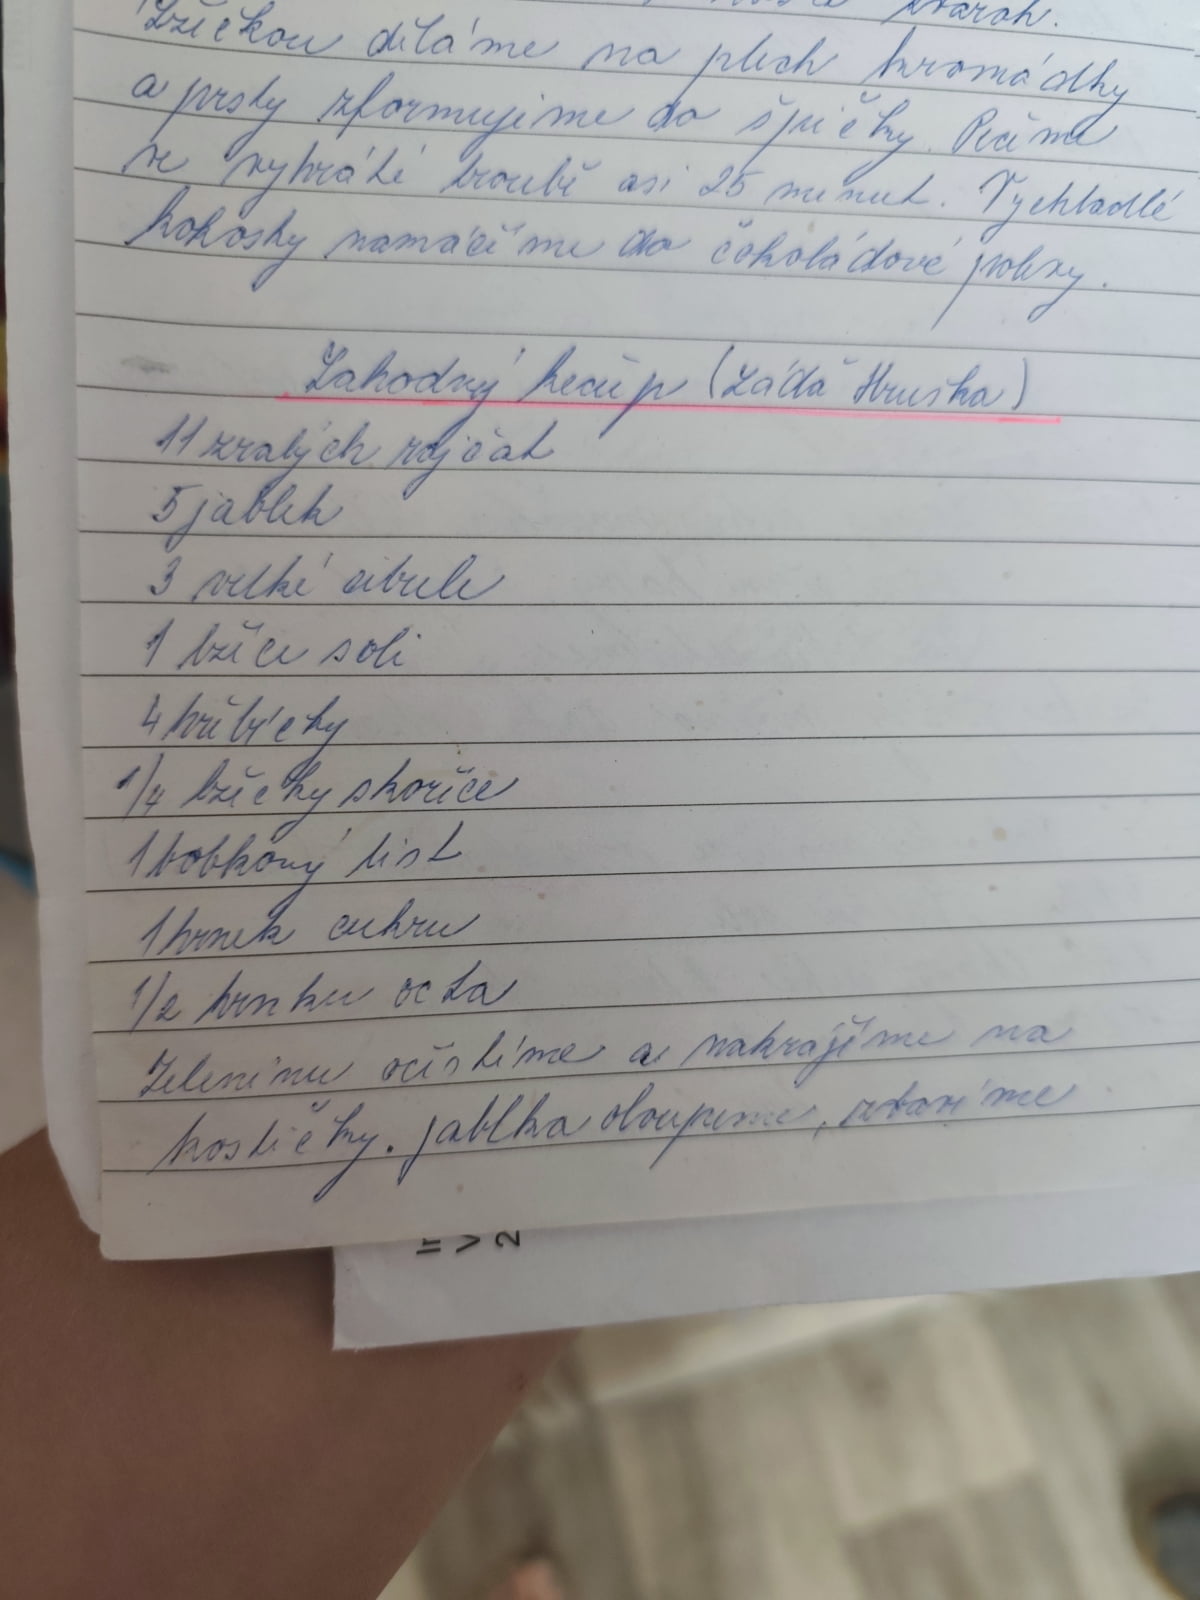 tvaroh.
Lžičkou děláme na plech hromádky
a prsty zformujeme do špičky. Pečeme
ve vyhřáté troubě asi 25 minut. Vychladlé
kokosky namáčíme do čokoládové polevy.
Lahodný kečup (Láďa Hruška)
11 zralých rajčat
5 jablek
3 velké cibule
1 lžíce soli
4 hřebíčky
1/4 lžičky skořice
1 bobkový list
1 hrnek cukru
1/2 hrnku octa
Zeleninu očistíme a nakrájíme na
kostičky. Jablka oloupeme, zbavíme